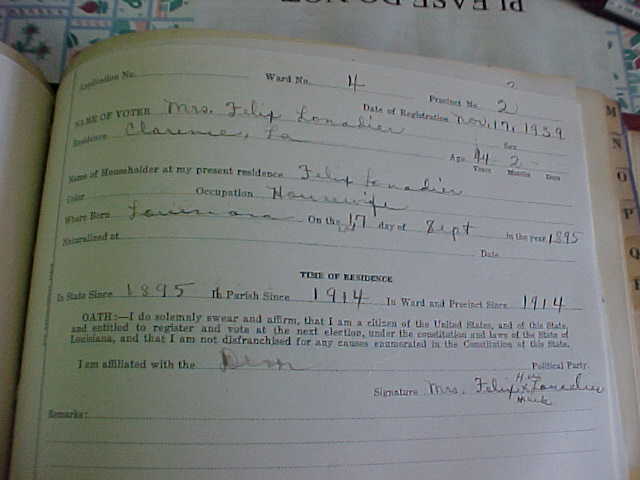 PLEASE DO NOT
Application No. Ward No. 4 Precinct No. 2
NAME OF VOTER Mrs. Felix Lonadier Date of Registration Nov. 17, 1939
Residence Clarence, La Sex
Age 44 2
Years Months Days
Name of Householder at my present residence Felix Lonadier
Color Occupation Housewife
Where Born Louisiana On the 17 day of Sept in the year 1895
Naturalized at Date
TIME OF RESIDENCE
In State Since 1895 In Parish Since 1914 In Ward and Precinct Since 1914
OATH:—I do solemnly swear and affirm, that I am a citizen of the United States, and of this State,
and entitled to register and vote at the next election, under the constitution and laws of the State of
Louisiana, and that I am not disfranchised for any causes enumerated in the Constitution of this State.
I am affiliated with the Dem Political Party.
Her
Signature Mrs. Felix x Lonadier
Mark
Remarks:
M
N
O
P
Q